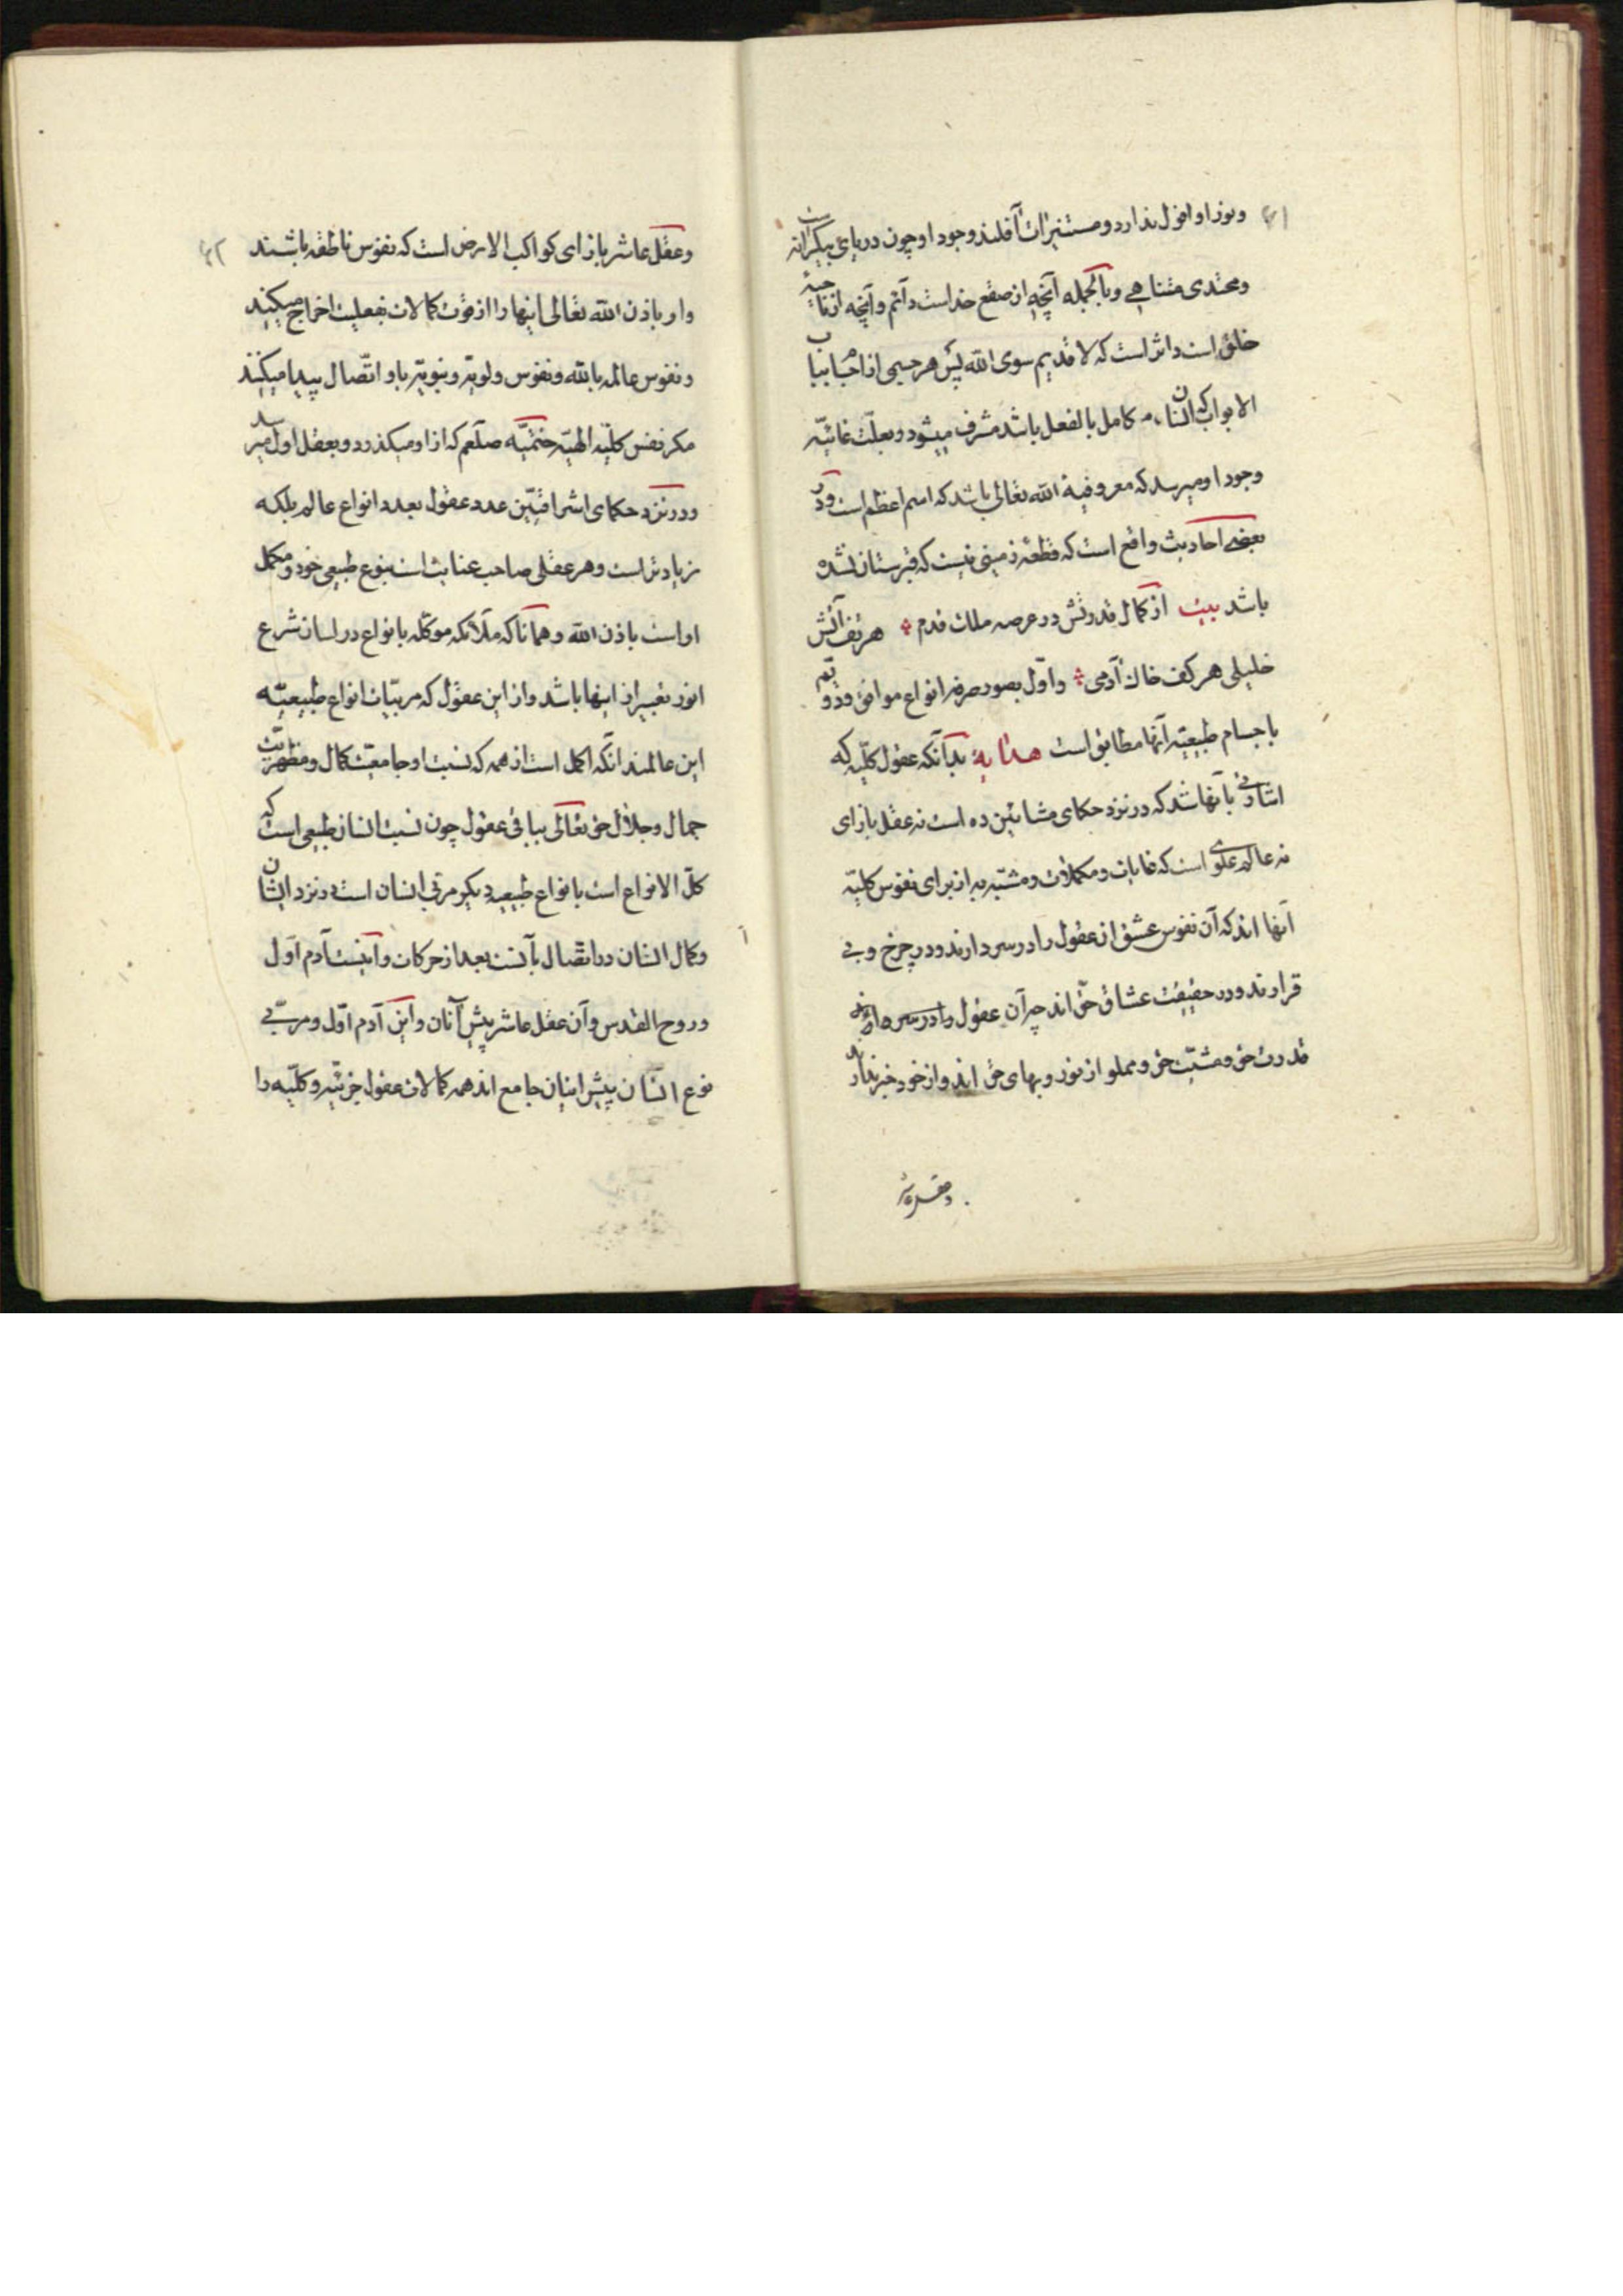 ۴۱
ونور او افول ندارد و مستنیرات آفلند وجود او چون دریای بیکرانست نه
ومحدی متناهی و بالجمله آنچه از صقع خداست دائم و آنچه از ناحیهٔ
خلق است داثر است که لا قدیم سوی الله پس هر جسمی
الابواب که انسان کامل بالفعل باشد مشرف میشود و بعلت غائیّه
وجود او میرسد که معروفیة الله تعالی باشد که اسم اعظم است و در
بعضی احادیث واقع است که قطعهٔ زمینی نیست که قبرستان نشده
باشد بیت از کمال قدرتش در عرصه ملک قدم هر تف آتش
خلیلی هر کف خاک آدمی و اوّل بصور صرفه انواع موافق و دوّیم
باجسام طبیعیّه آنها مطابق است هدایة بدآنکه عقول کلّیه که
اشارتی بآنها شد که در نزد حکمای مشائین ده است نه عقل بازای
نه عالم علوی است که غایات و مکملات و مشبّه به از برای نفوس کلیّه
آنها اند که آن نفوس عشق از عقول را در سر دارند و در چرخ و بی
قرارند و در حقیقت عشاق حقّ اند چه آن عقول را در سر
قدرت حق و مشیّت حق و مملو از نور و بهای حق اند و از خود خبر ندارند
وعقل عاشر
۴۲
وعقل عاشر بازای کواکب الارض است که نفوس ناطقه باشند
واو باذن الله تعالی اینها را از قوت کمالات بفعلیت اخراج میکند
ونفوس عالمه بالله و نفوس ولویّه و نبویّه باو اتّصال پیدا میکنند
مکر نفس کلیّه الهیّه ختمیّه صلعم که از او میکذرد و بعقل اول میرسد
ودر نزد حکمای اشراقیّین عدد عقول بعدد انواع عالم بلکه
زیادتر است و هر عقلی صاحب عنایت است بنوع طبیعی خود و مکمل
اوست باذن الله و همانا که ملائکه موکله بانواع در لسان شرع
انور تعبیر از اینها باشد و از این عقول که مربیّات انواع طبیعیّه
این عالمند آنکه اکمل است از همه که نسبت او جامعیّت کمال و مظهریّت
جمال و جلال حق تعالی بباقی عقول چون نسبت انسان طبیعی است که
کلّ الانواع است بانواع طبیعیه دیکر مربّی انسان است در نزد ایشان
وکمال انسان در اتّصال بآنست بعد از حرکات و آنست آدم اول
وروح القدس و آن عقل عاشر پیش آنان و این آدم اوّل و مربّی
نوع انسان پیش اینان جامع اند همه کمالات عقول جزئیّه و کلیّه را